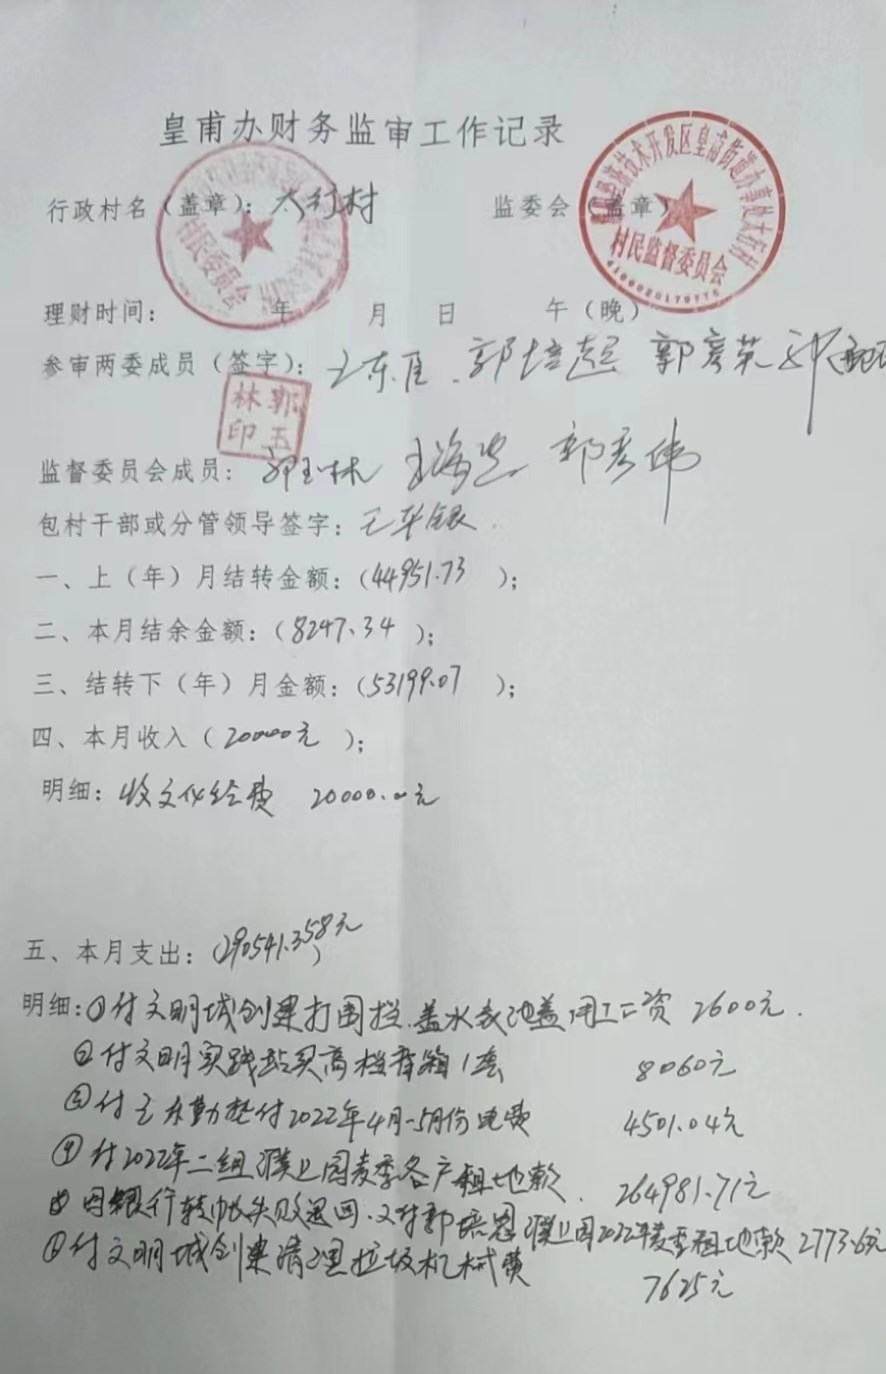 皇甫办财务监审工作记录
行政村名（盖章）：大行村 监委会（盖章）
村民委员会
技术开发区皇甫街道办事处大行村
村民监督委员会
理财时间： 年 月 日 午（晚）
参审两委成员（签字）： 郭培超 郭彦英
郭玉林印
监督委员会成员：郭玉林 王海 郭彦伟
包村干部或分管领导签字：王华银
一、上（年）月结转金额：（44951.73 ）；
二、本月结余金额：（8247.34 ）；
三、结转下（年）月金额：（53199.07 ）；
四、本月收入（20000元 ）；
明细：收文化经费 20000.00元
五、本月支出：（290541.358元）
明细：①付文明城创建打围挡.盖水表池盖用工工资 2600元.
②付文明实践站买高档音箱1套 8060元
③付王东勤垫付2022年4月-5月份电费 4501.04元
④付2022年二组濮上园麦季各户租地款. 264981.71元
⑤因银行转帐失败退回.又付郭培恩濮上园2022年麦季租地款 2773.6元
⑥付文明城创建清理垃圾机械费 7625元